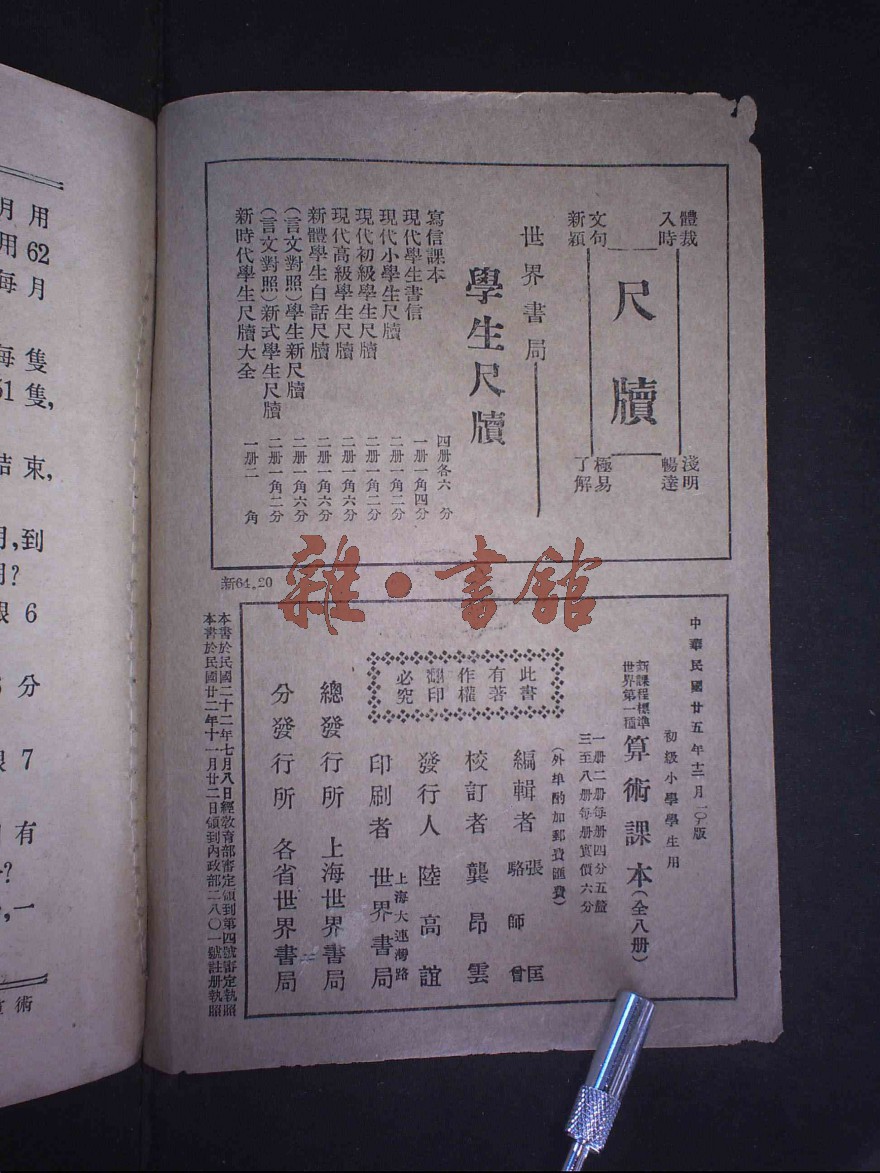 體裁
入時
尺牘
淺明
暢達
文句
新穎
極易
了解
世界書局
學生尺牘
寫信課本 四册各六分
現代學生書信 一册一角四分
現代小學生尺牘 二册一角二分
現代初級學生尺牘 二册一角二分
現代高級學生尺牘 二册一角六分
新體學生白話尺牘 二册一角六分
(言文對照)學生新尺牘 二册一角六分
(言文對照)新式學生尺牘 二册一角二分
新時代學生尺牘大全 一册二角
新64,20
中華民國廿五年十二月一〇版
初級小學學生用
新課程標準
世界第一種
算術課本(全八册)
一册二册每册四分五釐
三至八册每册實價六分
(外埠酌加郵費匯費)
此書
有著
作權
翻印
必究
編輯者 張匡
駱師曾
校訂者 龔昂雲
發行人 陸高誼
上海大連灣路
印刷者 世界書局
總發行所 上海世界書局
分發行所 各省世界書局
本書於民國二十二年七月八日經教育部審定領到第四號審定執照
本書於民國廿二年十一月廿二日領到內政部二八〇一號註册執照
雜·書館
月用
用62
每月
每隻
51隻,
結束,
月,到
月?
限6
分
限7
有
?
,一
術